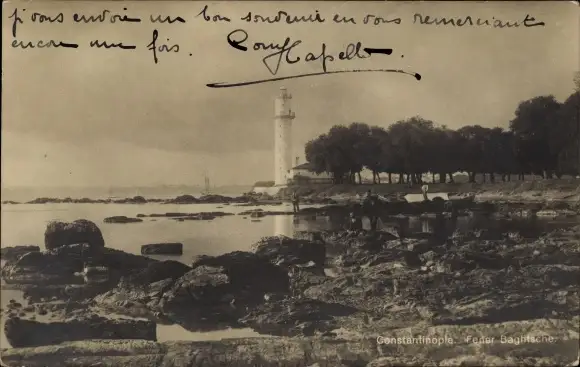 je vous envoie un bon souvenir en vous remerciant
encore une fois.
Constantinople. Fener Baghtsche.